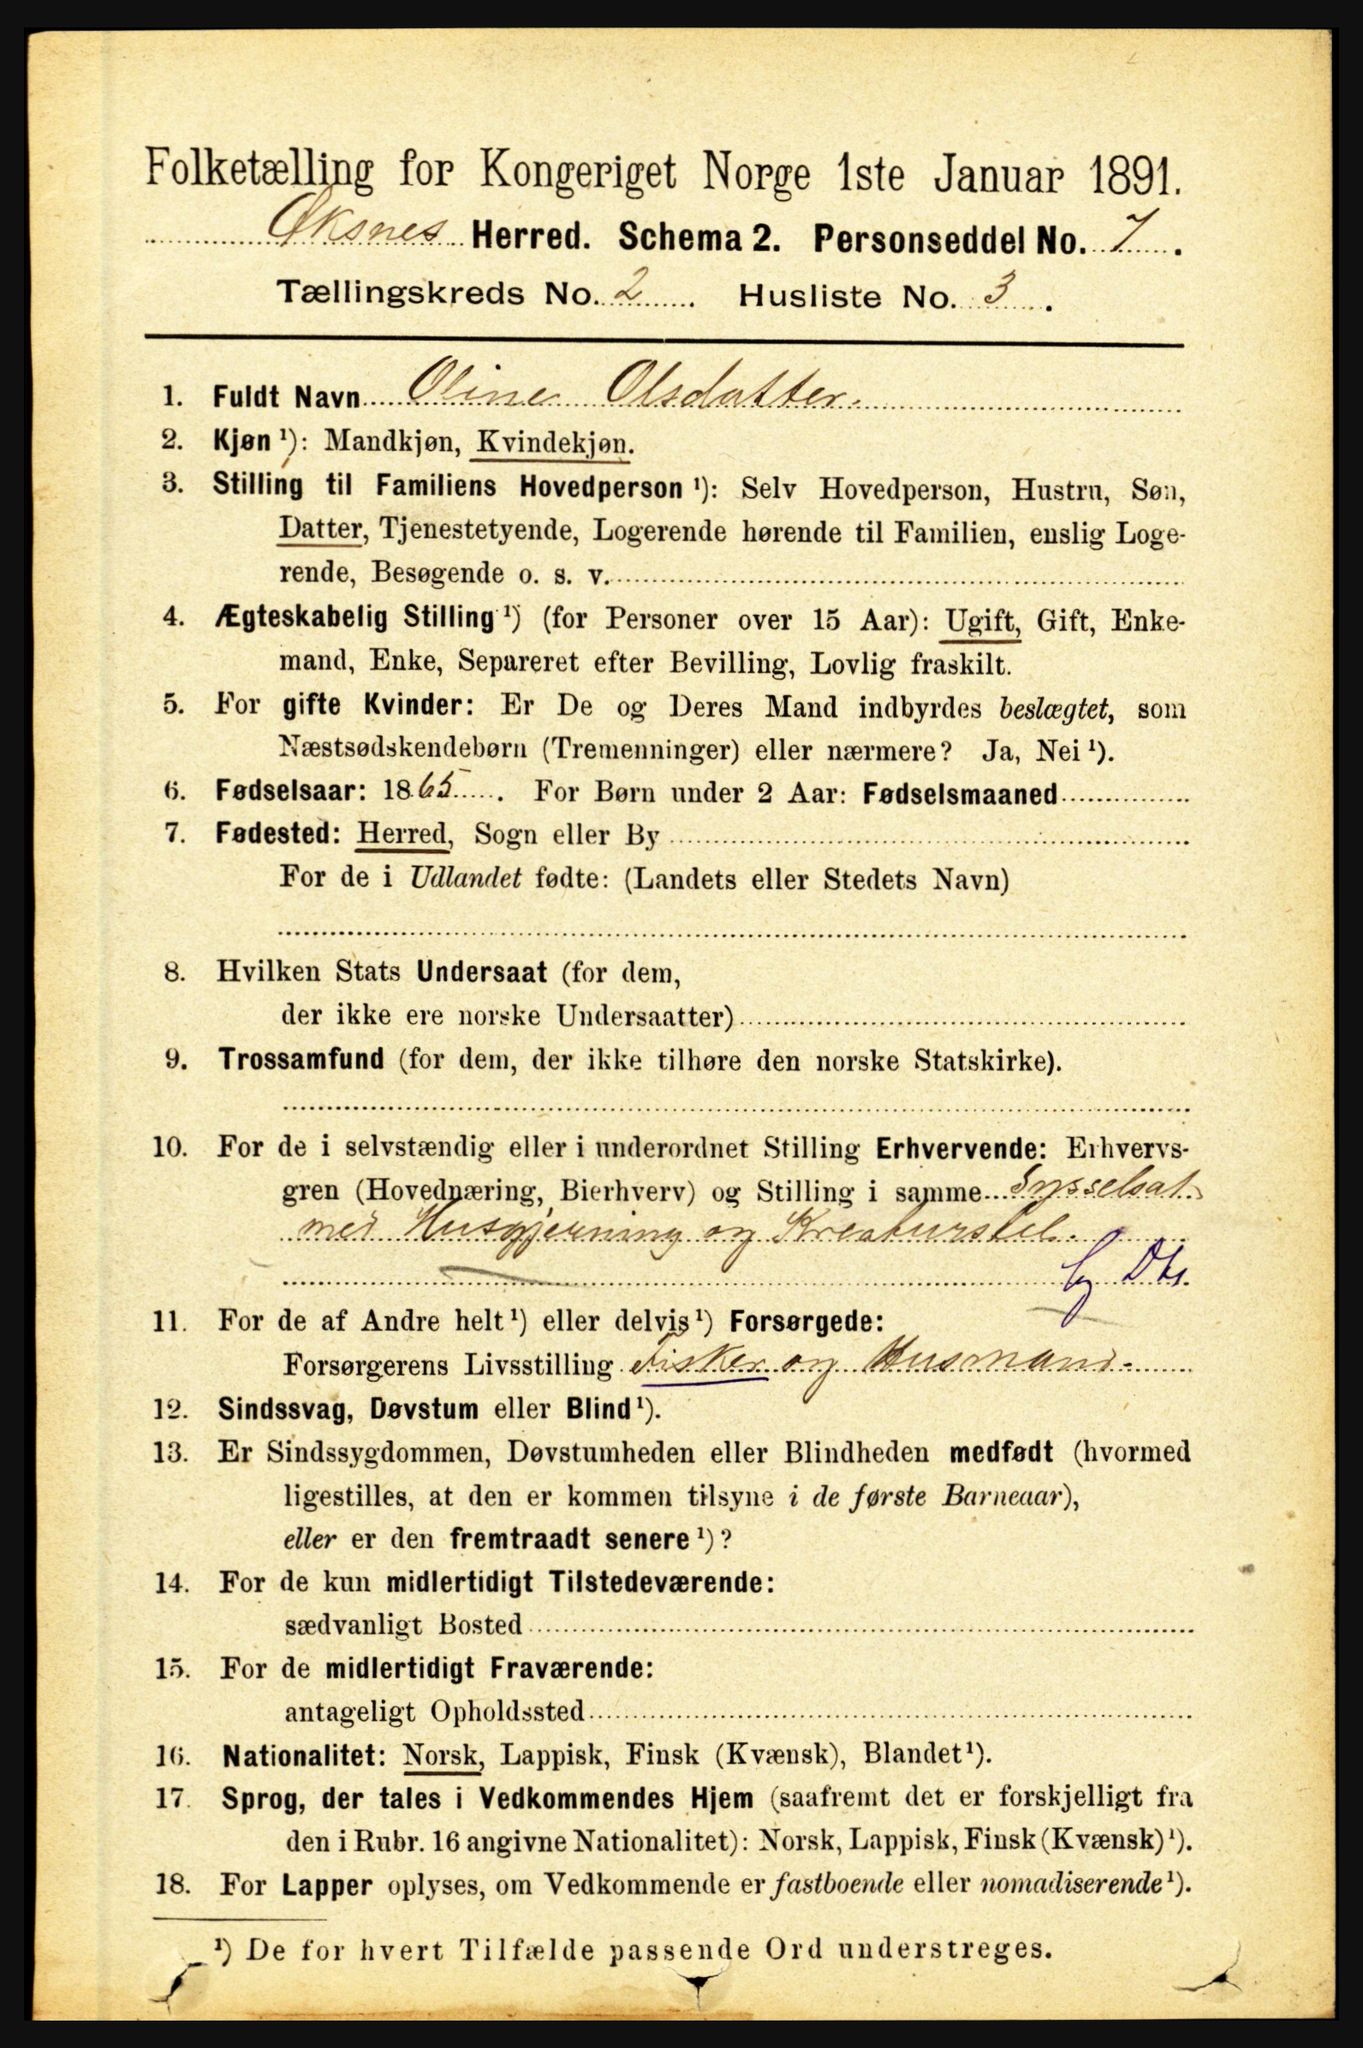 Folketælling for Kongeriget Norge 1ste Januar 1891.
Øksnes Herred. Schema 2. Personseddel No. 7.
Tællingskreds No. 2. Husliste No. 3.
1. Fuldt Navn Oline Olsdatter.
2. Kjøn ¹): Mandkjøn, Kvindekjøn.
3. Stilling til Familiens Hovedperson ¹): Selv Hovedperson, Hustru, Søn,
Datter, Tjenestetyende, Logerende hørende til Familien, enslig Loge-
rende, Besøgende o. s. v.
4. Ægteskabelig Stilling ¹) (for Personer over 15 Aar): Ugift, Gift, Enke-
mand, Enke, Separeret efter Bevilling, Lovlig fraskilt.
5. For gifte Kvinder: Er De og Deres Mand indbyrdes beslægtet, som
Næstsødskendebørn (Tremenninger) eller nærmere? Ja, Nei ¹).
6. Fødselsaar: 1865. For Børn under 2 Aar: Fødselsmaaned
7. Fødested: Herred, Sogn eller By
For de i Udlandet fødte: (Landets eller Stedets Navn)
8. Hvilken Stats Undersaat (for dem,
der ikke ere norske Undersaatter)
9. Trossamfund (for dem, der ikke tilhøre den norske Statskirke).
10. For de i selvstændig eller i underordnet Stilling Erhvervende: Erhvervs-
gren (Hovednæring, Bierhverv) og Stilling i samme Sysselsat
med Husgjerning og Kreaturstel.
11. For de af Andre helt ¹) eller delvis ¹) Forsørgede:
Forsørgerens Livsstilling Fisker og Husmand.
12. Sindssvag, Døvstum eller Blind ¹).
13. Er Sindssygdommen, Døvstumheden eller Blindheden medfødt (hvormed
ligestilles, at den er kommen tilsyne i de første Barneaar),
eller er den fremtraadt senere ¹)?
14. For de kun midlertidigt Tilstedeværende:
sædvanligt Bosted
15. For de midlertidigt Fraværende:
antageligt Opholdssted
16. Nationalitet: Norsk, Lappisk, Finsk (Kvænsk), Blandet ¹).
17. Sprog, der tales i Vedkommendes Hjem (saafremt det er forskjelligt fra
den i Rubr. 16 angivne Nationalitet): Norsk, Lappisk, Finsk (Kvænsk) ¹).
18. For Lapper oplyses, om Vedkommende er fastboende eller nomadiserende ¹).
¹) De for hvert Tilfælde passende Ord understreges.